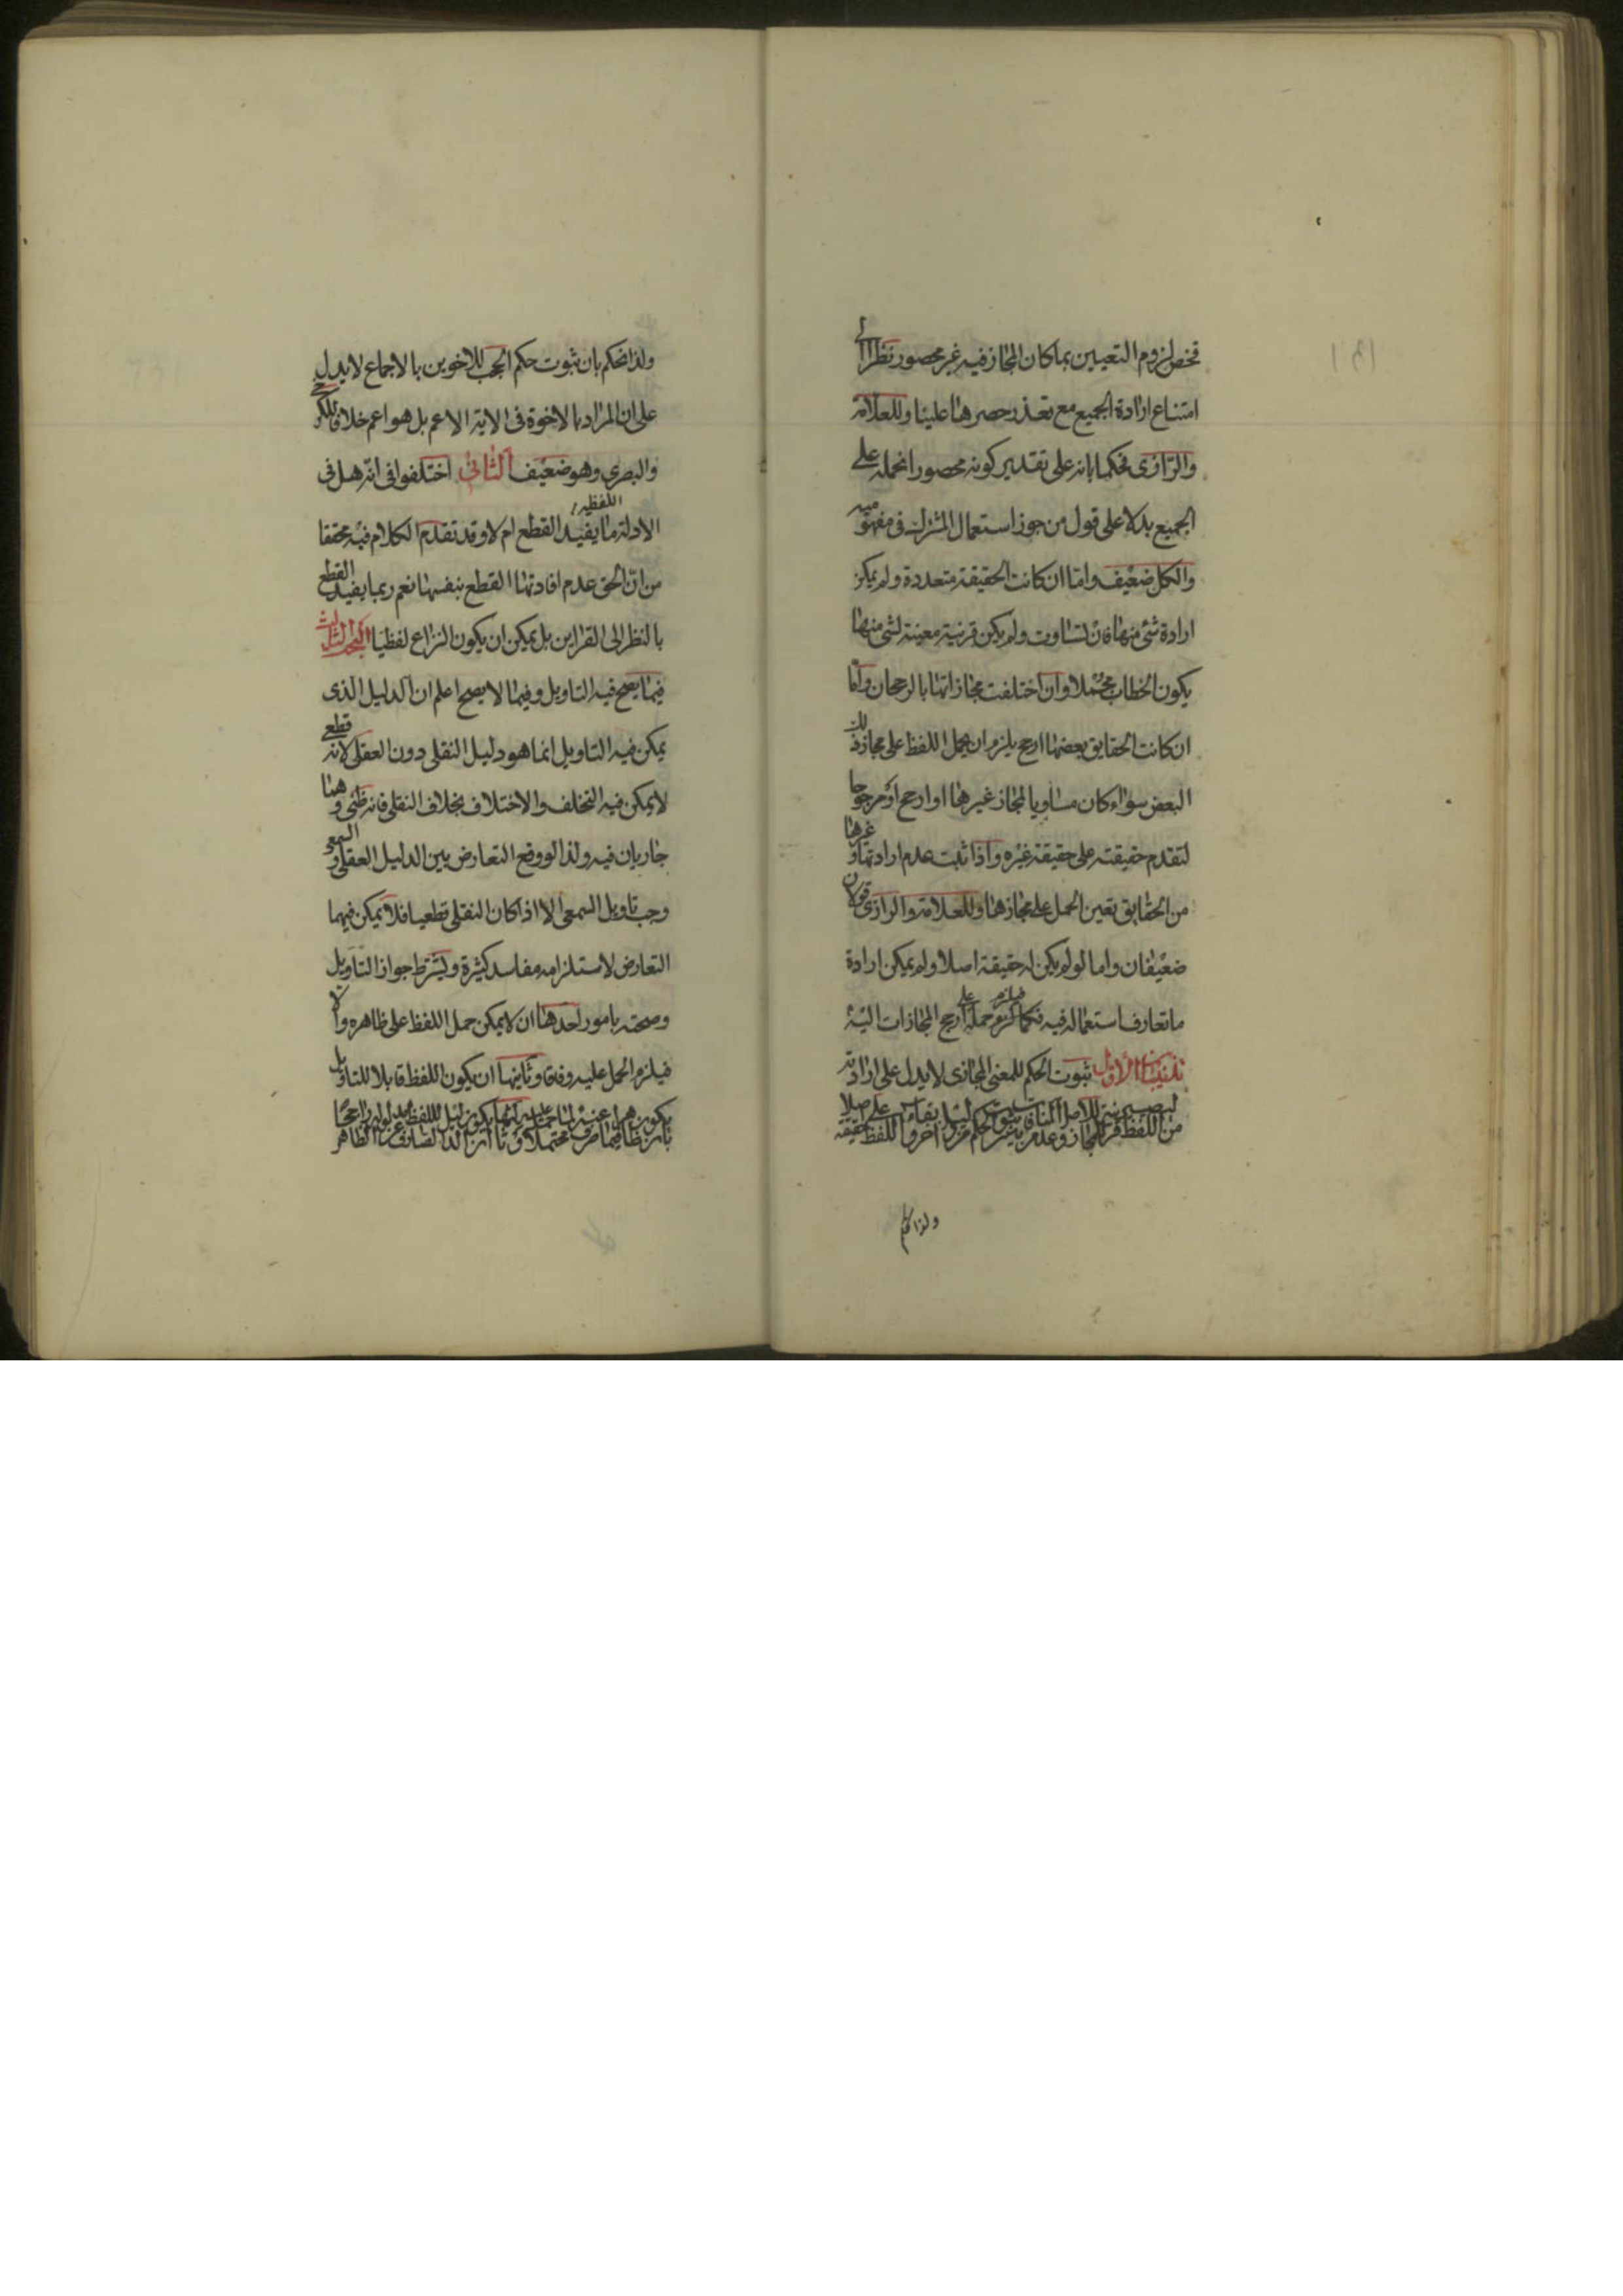 فخص لزوم التعيين بما كان المجاز فيه غير محصور نظرا الى
امتناع ارادة الجميع مع تعذر حصرها علينا وللعلامة
والرازى فحكما بانه على تقدير كونه محصورا نحمله على
الجميع بدلا على قول من جوز استعمال المشترك فى مفهوميه
والكل ضعيف واما ان كانت الحقيقة متعددة ولم يمكن
ارادة شئ منها فان تساوت ولم يكن قرينة معينة لشئ منها
يكون الخطاب مجملا وان اختلفت مجازاتها بالرجحان واما
ان كانت الحقايق بعضها ارجح يلزم ان يحمل اللفظ على مجاز ذلك
البعض سواء كان مساويا لمجاز غيرها او ارجح او مرجوحا
لتقدم حقيقته على حقيقة غيره واذا ثبت عدم ارادتها وغيرها
من الحقايق تعين الحمل على مجازها وللعلامة والرازى قولان
ضعيفان واما لو لم يكن له حقيقة اصلا ولم يمكن ارادة
ما تعارف استعماله فيه فيلزم حمله على ارجح المجازات اليه
تذنيبان الأول ثبوت الحكم للمعنى المجازى لا يدل على ارادته
من اللفظ
ولذا نحكم
ولذا نحكم بان ثبوت حكم الحجب للاخوين بالاجماع لا يدل
على ان المراد بالاخوة فى الاية الاعم بل هو اعم خلافا للكرخى
والبصرى وهو ضعيف الثانى اختلفوا فى انه هل فى
الادلة اللفظية ما يفيد القطع ام لا وقد تقدم الكلام فيه محققا
من ان الحق عدم افادتها القطع بنفسها نعم ربما يفيد القطع
بالنظر الى القراين بل يمكن ان يكون النزاع لفظيا البحث الثالث
فيما يصح فيه التاويل وفيما لا يصح اعلم ان الدليل الذى
يمكن فيه التاويل انما هو دليل النقلى دون العقلى لانه قطعى
لا يمكن فيه التخلف والاختلاف بخلاف النقلى فانه ظنى وهما
جاريان فيه ولذا لو وقع التعارض بين الدليل العقلى والسمعى
وجب تاويل السمعى الا اذا كان النقلى قطعيا فلا يمكن فيهما
التعارض لاستلزامه مفاسد كثيرة ويشترط جواز التاويل
وصحته بامور احدها ان لا يمكن حمل اللفظ على ظاهره والا
فيلزم الحمل عليه وفاقا وثانيها ان يكون اللفظ قابلا للتاويل